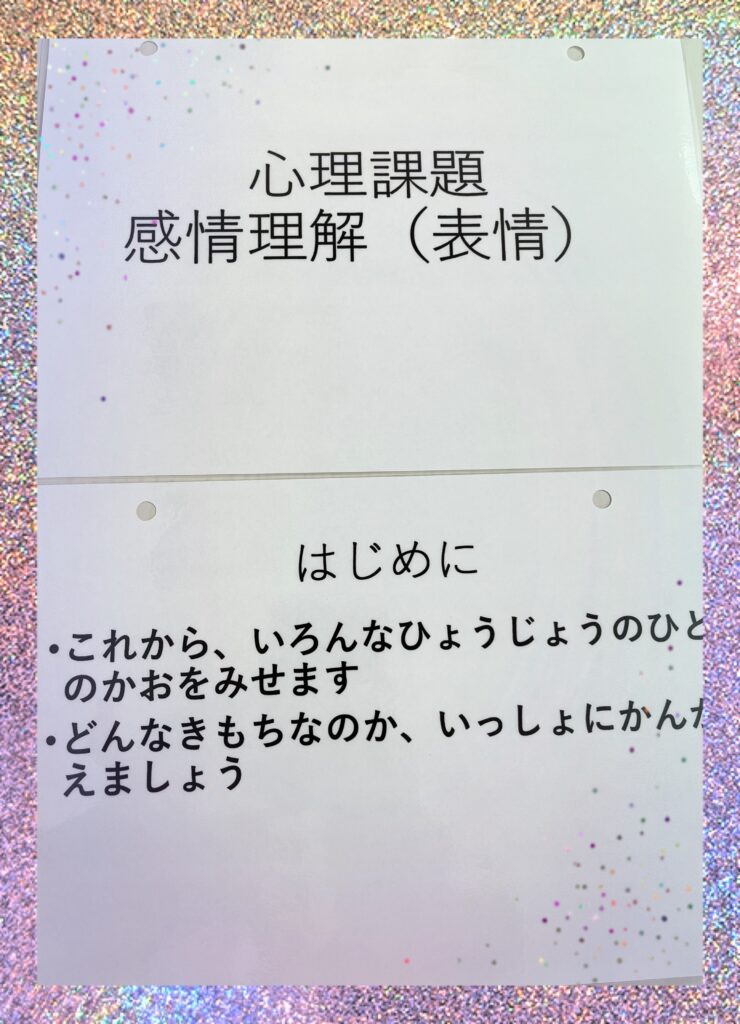 心理課題
感情理解（表情）
はじめに
•これから、いろんなひょうじょうのひと
のかおをみせます
•どんなきもちなのか、いっしょにかんが
えましょう